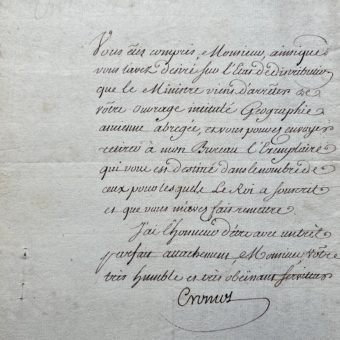 Vous êtes compris, Monsieur, ainsi que
vous l'avez desiré sur l'Etat de distribution
que le Ministre vient d'arrêter de
vôtre ouvrage intitulé Géographie
ancienne abregée, et vous pouvez envoyer
retirer à mon Bureau l'Exemplaire
qui vous est destiné dans le nombre de
ceux pour lesquels Le Roi a souscrit
et que vous m'avez fait remettre
J'ai l'honneur d'être avec un très
parfait attachement, Monsieur, vôtre
très humble et très obéissant serviteur
Cromot